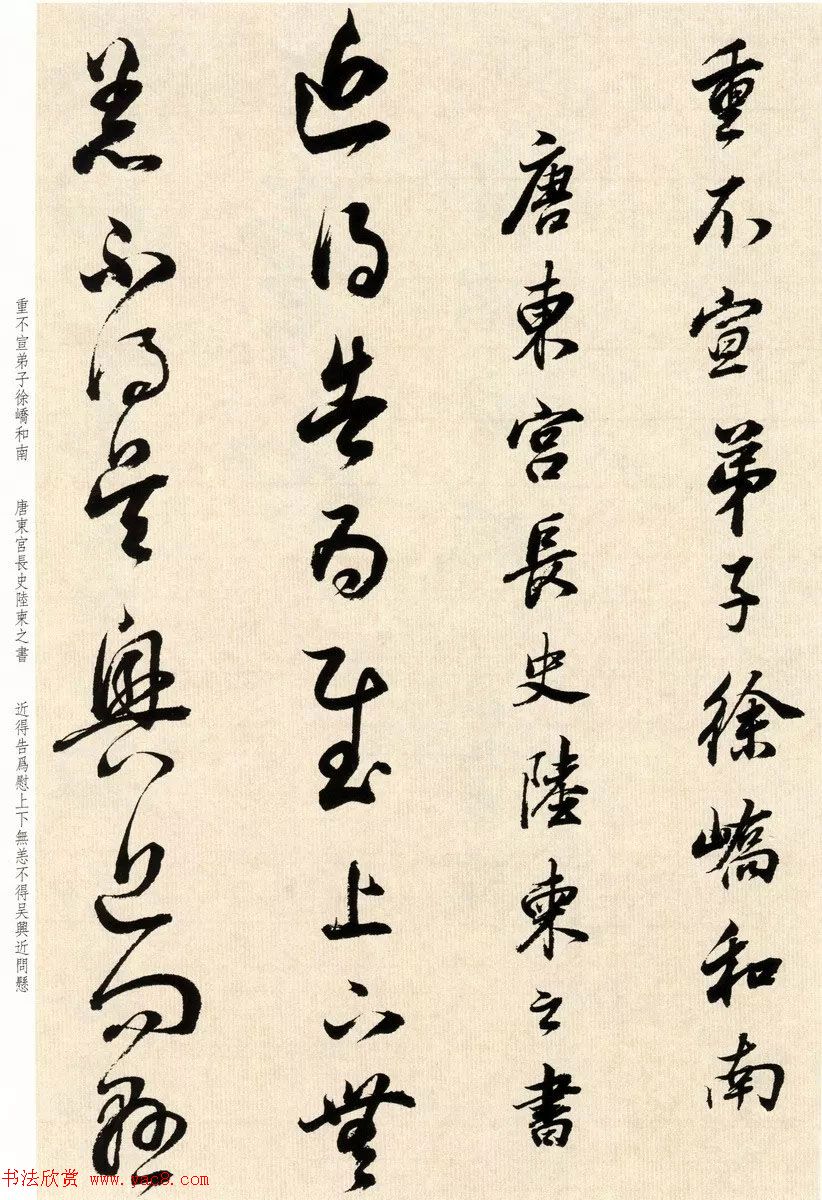 重不宣弟子徐嶠和南
唐東宮長史陸柬之書
近得告為慰上下無
恙不得吴興近問懸
重不宣弟子徐嶠和南 唐東宮長史陸柬之書 近得告爲慰上下無恙不得吴興近問懸
书法欣赏 www.yac8.com